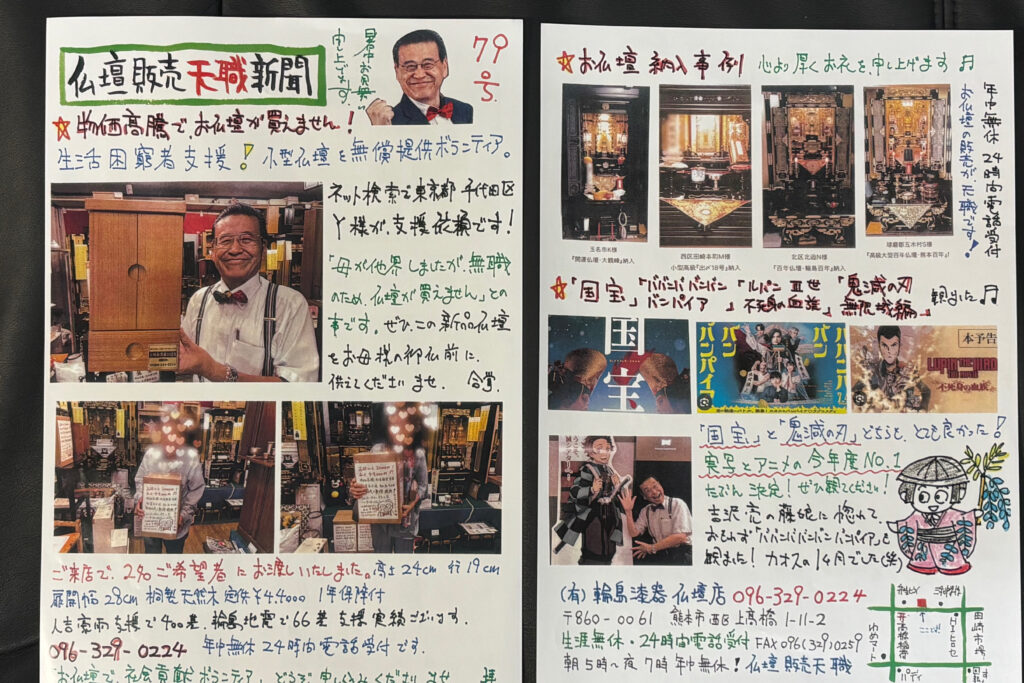 仏壇販売天職新聞
暑中お見舞い
申し上げます。
79
号
☆物価高騰で、お仏壇が買えません!
生活困窮者支援!小型仏壇を無償提供ボランティア。
ネット検索で東京都千代田区
Y様が、支援依頼です!
「母が他界しましたが、無職
のため、仏壇が買えません」との
事です。ぜひ、この新品仏壇
をお母様の御仏前に、
供えてくださいませ。合掌
ご来店で、2名ご希望者にお渡しいたしました。高さ24cm 行19cm
扉開幅28cm 桐製天然木 定価¥44000 1年保障付
人吉豪雨支援で400基、輪島地震で66基支援実績ございます。
096-329-0224 年中無休24時間電話受付です。
お仏壇で、社会貢献ボランティア、どうぞ申し込みくださいませ 拝
☆お仏壇納入事例 心より厚くお礼を申し上げます♬
年中無休24時間電話受付
お仏壇の販売が、天職です!
玉名市K様
『開運仏壇・大鶴峰』納入
西区田崎本町M様
小型高級『出〆18号』納入
北区北迫N様
『百年仏壇・輪島百年』納入
球磨郡五木村S様
『高級大型百年仏壇・熊本百年』納入
☆「国宝」「ババンババンバン
バンパイア」
「ルパン三世
不死身の血族」
「鬼滅の刃
無限城編」
観ました♬
国宝
ババンババンバンバンパイア
本予告
LUPIN THE IIIRD
不死身の血族
「国宝」と「鬼滅の刃」どちらも、とても良かった!
実写とアニメの今年度NO.1
たぶん決定!ぜひ観てください!
吉沢亮の藤娘に惚れて、
おもわず「ババンババンバンバンパイア」も
観ました!カオスの1ヶ月でした(笑)
(有)輪島漆器仏壇店 096-329-0224
〒860-0061 熊本市西区上高橋1-11-2
生涯無休・24時間電話受付 FAX096(329)0259
朝5時〜夜7時 年中無休!仏壇販売天職
ここだよ
田崎市場
ゆめマート